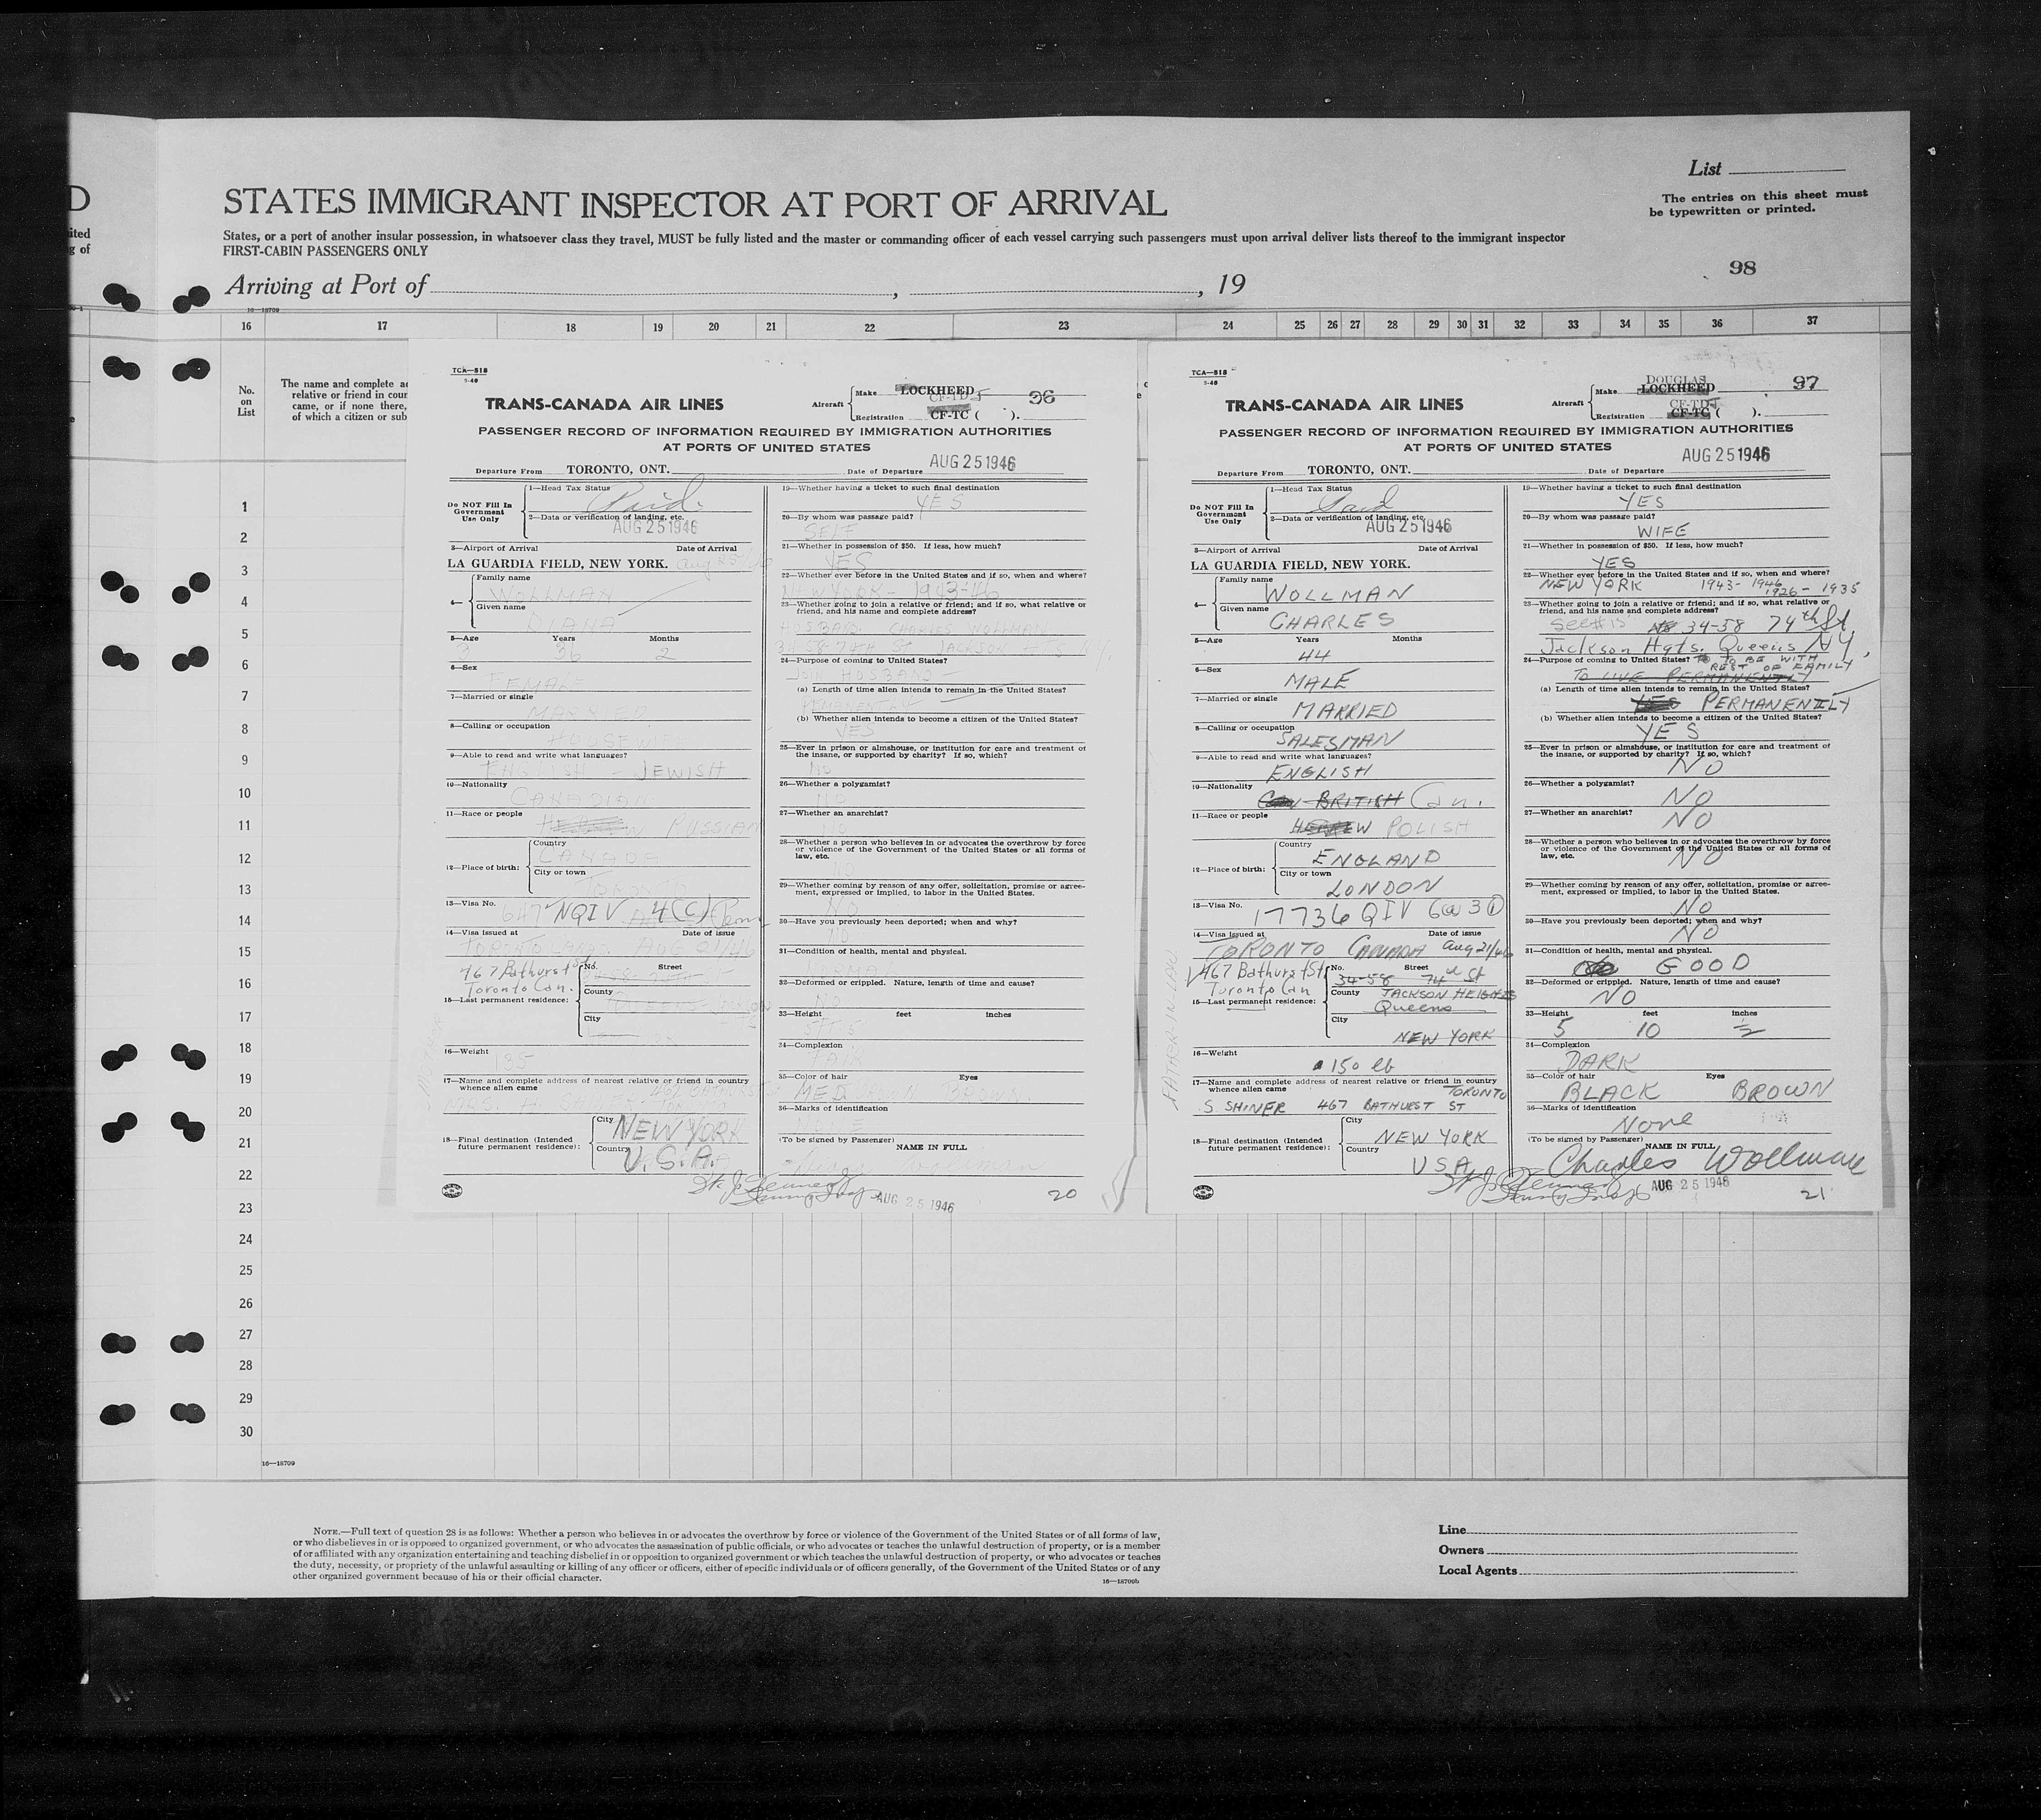 List
STATES IMMIGRANT INSPECTOR AT PORT OF ARRIVAL
The entries on this sheet must
be typewritten or printed.
States, or a port of another insular possession, in whatsoever class they travel, MUST be fully listed and the master or commanding officer of each vessel carrying such passengers must upon arrival deliver lists thereof to the immigrant inspector
FIRST-CABIN PASSENGERS ONLY
98
Arriving at Port of , , 19
16—18709
16 17 18 19 20 21 22 23 24 25 26 27 28 29 30 31 32 33 34 35 36 37
No.
on
List
The name and complete
relative or friend in cour
came, or if none there,
of which a citizen or sub
1
2
3
4
5
6
7
8
9
10
11
12
13
14
15
16
17
18
19
20
21
22
23
24
25
26
27
28
29
30
16—18709
TCA—518
5-46
TRANS-CANADA AIR LINES
Aircraft Make LOCKHEED
CF-TDJ
Registration CF-TC ( ).
96
PASSENGER RECORD OF INFORMATION REQUIRED BY IMMIGRATION AUTHORITIES
AT PORTS OF UNITED STATES
Departure From TORONTO, ONT. Date of Departure AUG 25 1946
Do NOT Fill In
Government
Use Only
1—Head Tax Status Paid
2—Data or verification of landing, etc.
AUG 25 1946
3—Airport of Arrival Date of Arrival
LA GUARDIA FIELD, NEW YORK. Aug 25
4— Family name
WOLLMAN
Given name
DIANA
5—Age Years Months
36 2
6—Sex
FEMALE
7—Married or single
MARRIED
8—Calling or occupation
HOUSEWIFE
9—Able to read and write what languages?
ENGLISH - JEWISH
10—Nationality
CANADIAN
11—Race or people
HEBREW RUSSIAN
12—Place of birth: Country
CANADA
City or town
TORONTO
13—Visa No.
647 NQIV 4(C)
14—Visa issued at Date of issue
TORONTO AUG 21/46
467 Bathurst St
Toronto Can.
15—Last permanent residence: No. Street
County
City
16—Weight
135
17—Name and complete address of nearest relative or friend in country
whence alien came
467 BATHURST
MRS. H.
18—Final destination (Intended
future permanent residence): City
NEW YORK
Country
U.S.A.
19—Whether having a ticket to such final destination
YES
20—By whom was passage paid?
SELF
21—Whether in possession of $50. If less, how much?
YES
22—Whether ever before in the United States and if so, when and where?
NEW YORK - 1943-46
23—Whether going to join a relative or friend; and if so, what relative or
friend, and his name and complete address?
HUSBAND CHARLES WOLLMAN
34-58-74TH ST JACKSON HTS NY.
24—Purpose of coming to United States?
JOIN HUSBAND
(a) Length of time alien intends to remain in the United States?
PERMANENTLY
(b) Whether alien intends to become a citizen of the United States?
YES
25—Ever in prison or almshouse, or institution for care and treatment of
the insane, or supported by charity? If so, which?
NO
26—Whether a polygamist?
NO
27—Whether an anarchist?
NO
28—Whether a person who believes in or advocates the overthrow by force
or violence of the Government of the United States or all forms of
law, etc.
NO
29—Whether coming by reason of any offer, solicitation, promise or agree-
ment, expressed or implied, to labor in the United States.
NO
30—Have you previously been deported; when and why?
NO
31—Condition of health, mental and physical.
NORMAL
32—Deformed or crippled. Nature, length of time and cause?
NO
33—Height feet inches
5FT. 5
34—Complexion
FAIR
35—Color of hair Eyes
MED BROWN BROWN
36—Marks of identification
NONE
(To be signed by Passenger) NAME IN FULL
Diana Wollman
AUG 25 1946
20
TCA—518
5-46
TRANS-CANADA AIR LINES
Aircraft Make DOUGLAS
LOCKHEED
CF-TDJ
Registration CF-TC ( ).
97
PASSENGER RECORD OF INFORMATION REQUIRED BY IMMIGRATION AUTHORITIES
AT PORTS OF UNITED STATES
Departure From TORONTO, ONT. Date of Departure AUG 25 1946
Do NOT Fill In
Government
Use Only
1—Head Tax Status Paid
2—Data or verification of landing, etc.
AUG 25 1946
3—Airport of Arrival Date of Arrival
LA GUARDIA FIELD, NEW YORK.
4— Family name
WOLLMAN
Given name
CHARLES
5—Age Years Months
44
6—Sex
MALE
7—Married or single
MARRIED
8—Calling or occupation
SALESMAN
9—Able to read and write what languages?
ENGLISH
10—Nationality
BRITISH Can.
11—Race or people
HEBREW POLISH
12—Place of birth: Country
ENGLAND
City or town
LONDON
13—Visa No.
17736 QIV 6(a)3
14—Visa issued at Date of issue
TORONTO CANADA Aug 21/46
467 Bathurst St
Toronto Can
15—Last permanent residence: No. Street
34-58 74th St
County JACKSON HEIGHTS
Queens
City
NEW YORK
FATHER-IN-LAW
16—Weight
150 lb
17—Name and complete address of nearest relative or friend in country
whence alien came
TORONTO
S. SHINER 467 BATHURST ST
18—Final destination (Intended
future permanent residence): City
NEW YORK
Country
USA
19—Whether having a ticket to such final destination
YES
20—By whom was passage paid?
WIFE
21—Whether in possession of $50. If less, how much?
YES
22—Whether ever before in the United States and if so, when and where?
NEW YORK 1943-1946
1926-1935
23—Whether going to join a relative or friend; and if so, what relative or
friend, and his name and complete address?
See #15 34-58 74th St
Jackson Hgts. Queens NY,
24—Purpose of coming to United States? TO BE WITH
REST OF FAMILY
TO LIVE PERMANENTLY
(a) Length of time alien intends to remain in the United States?
YES PERMANENTLY
(b) Whether alien intends to become a citizen of the United States?
YES
25—Ever in prison or almshouse, or institution for care and treatment of
the insane, or supported by charity? If so, which?
NO
26—Whether a polygamist?
NO
27—Whether an anarchist?
NO
28—Whether a person who believes in or advocates the overthrow by force
or violence of the Government of the United States or all forms of
law, etc.
NO
29—Whether coming by reason of any offer, solicitation, promise or agree-
ment, expressed or implied, to labor in the United States.
NO
30—Have you previously been deported; when and why?
NO
31—Condition of health, mental and physical.
GOOD
32—Deformed or crippled. Nature, length of time and cause?
NO
33—Height feet inches
5 10 ½
34—Complexion
DARK
35—Color of hair Eyes
BLACK BROWN
36—Marks of identification
None
(To be signed by Passenger) NAME IN FULL
Charles Wollman
AUG 25 1946
21
NOTE.—Full text of question 28 is as follows: Whether a person who believes in or advocates the overthrow by force or violence of the Government of the United States or of all forms of law,
or who disbelieves in or is opposed to organized government, or who advocates the assassination of public officials, or who advocates or teaches the unlawful destruction of property, or is a member
of or affiliated with any organization entertaining and teaching disbelief in or opposition to organized government or which teaches the unlawful destruction of property, or who advocates or teaches
the duty, necessity, or propriety of the unlawful assaulting or killing of any officer or officers, either of specific individuals or of officers generally, of the Government of the United States or of any
other organized government because of his or their official character.
16—18709b
Line
Owners
Local Agents